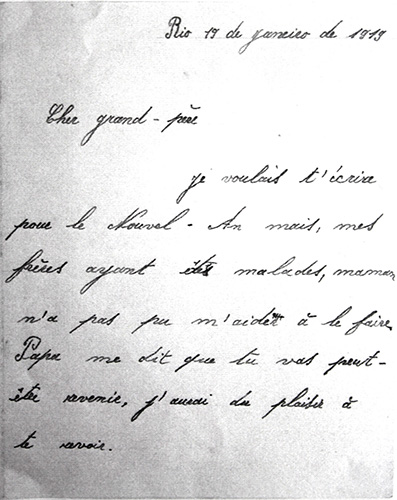 Rio 19 de janeiro de 1919
Cher grand-père
je voulais t'écrire
pour le Nouvel-An mais, mes
frères ayant étés malades, maman
n'a pas pu m'aider à le faire
Papa me dit que tu vas peut-
être revenir, j'aurai du plaisir à
te revoir.